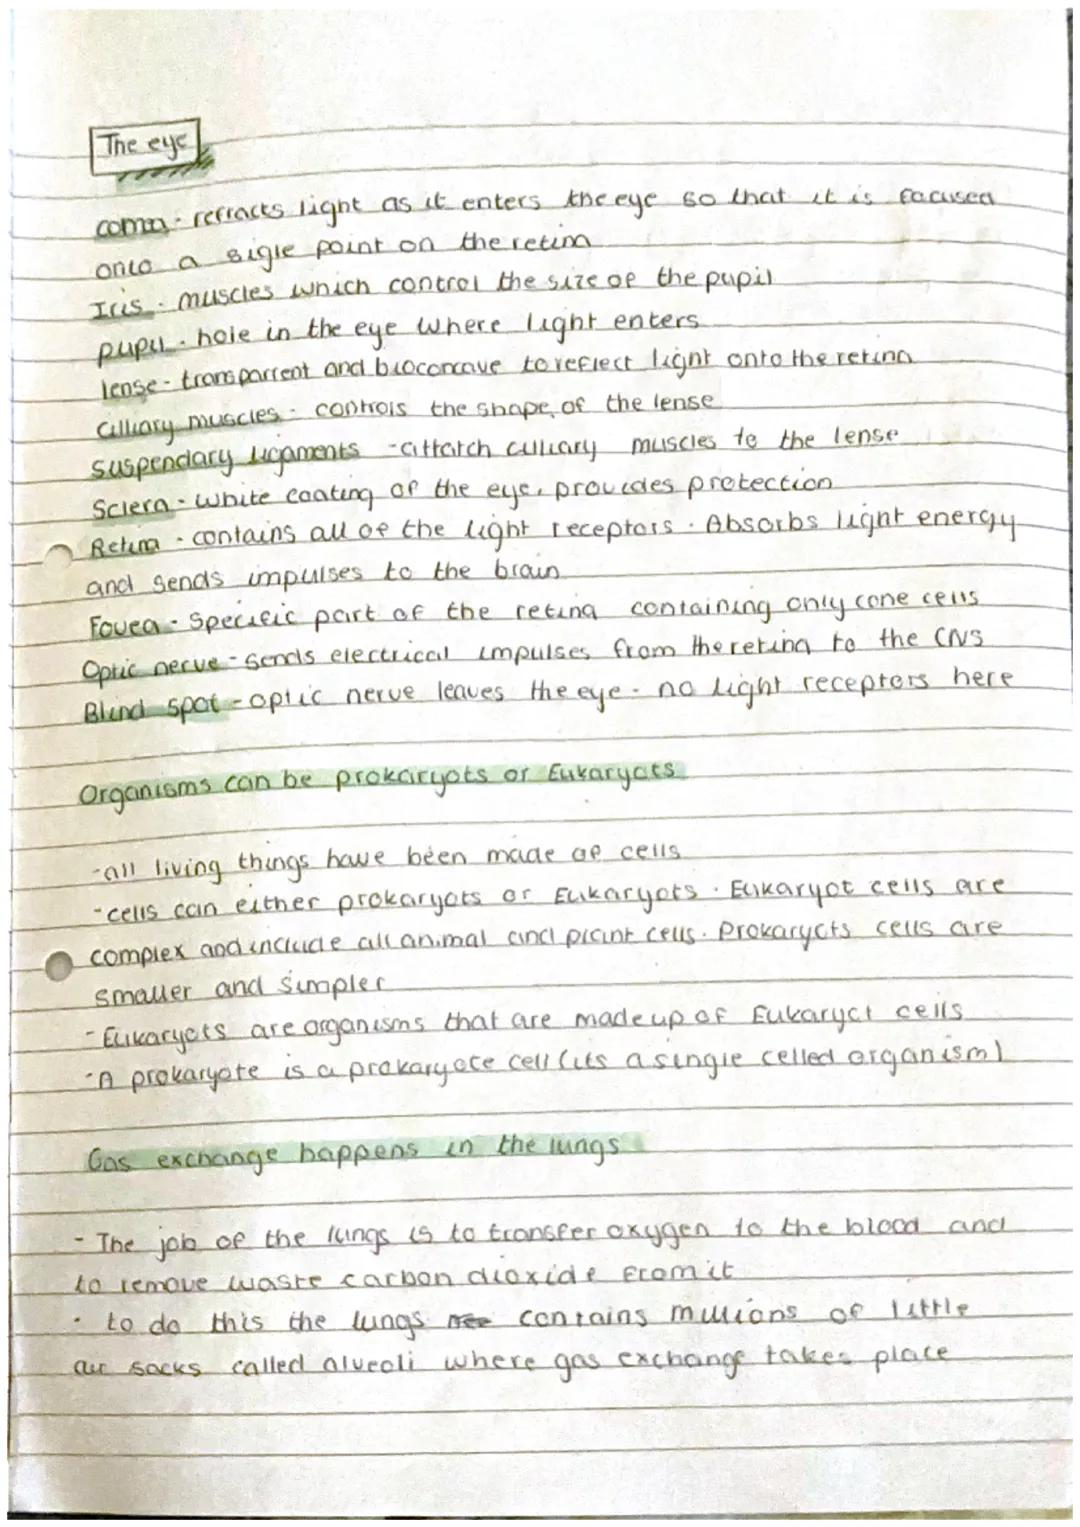 The eye
cornea - refracts light as it enters the eye so that it is focused
onto a sigle point on the retina
Iris - muscles which control the size of the pupil
pupil - hole in the eye where light enters
lense - transparrent and bioconcave to reflect light onto the retina
cilliary muscles - controls the shape of the lense
suspendary ligaments - attatch cilliary muscles to the lense
Sclera - white coating of the eye, provides protection
Retina - contains all of the light receptors. Absorbs light energy
and sends impulses to the brain
Fovea - Specific part of the retina containing only cone cells
Optic nerve - sends electrical impulses from the retina to the CNS
Blind spot - optic nerve leaves the eye - no light receptors here
Organisms can be prokaryots or Eukaryots
- all living things have been made of cells
- cells can either prokaryots or Eukaryots. Eukaryot cells are
complex and include all animal and plant cells. Prokaryots cells are
smaller and simpler
- Eukaryots are organisms that are made up of Eukaryot cells
- A prokaryote is a prokaryote cell (its a single celled organism)
Gas exchange happens in the lungs
- The job of the lungs is to transfer oxygen to the blood and
to remove waste carbon dioxide from it
· to do this the lungs contains millions of little
air sacks called alveoli where gas exchange takes place